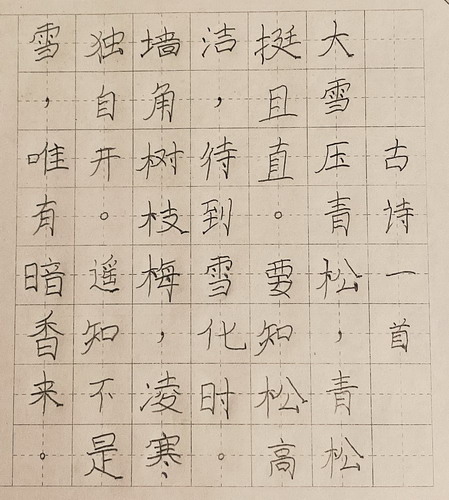 古诗一首
大雪压青松，青松
挺且直。要知松高
洁，待到雪化时。
墙角树枝梅，凌寒
独自开。遥知不是
雪，唯有暗香来。